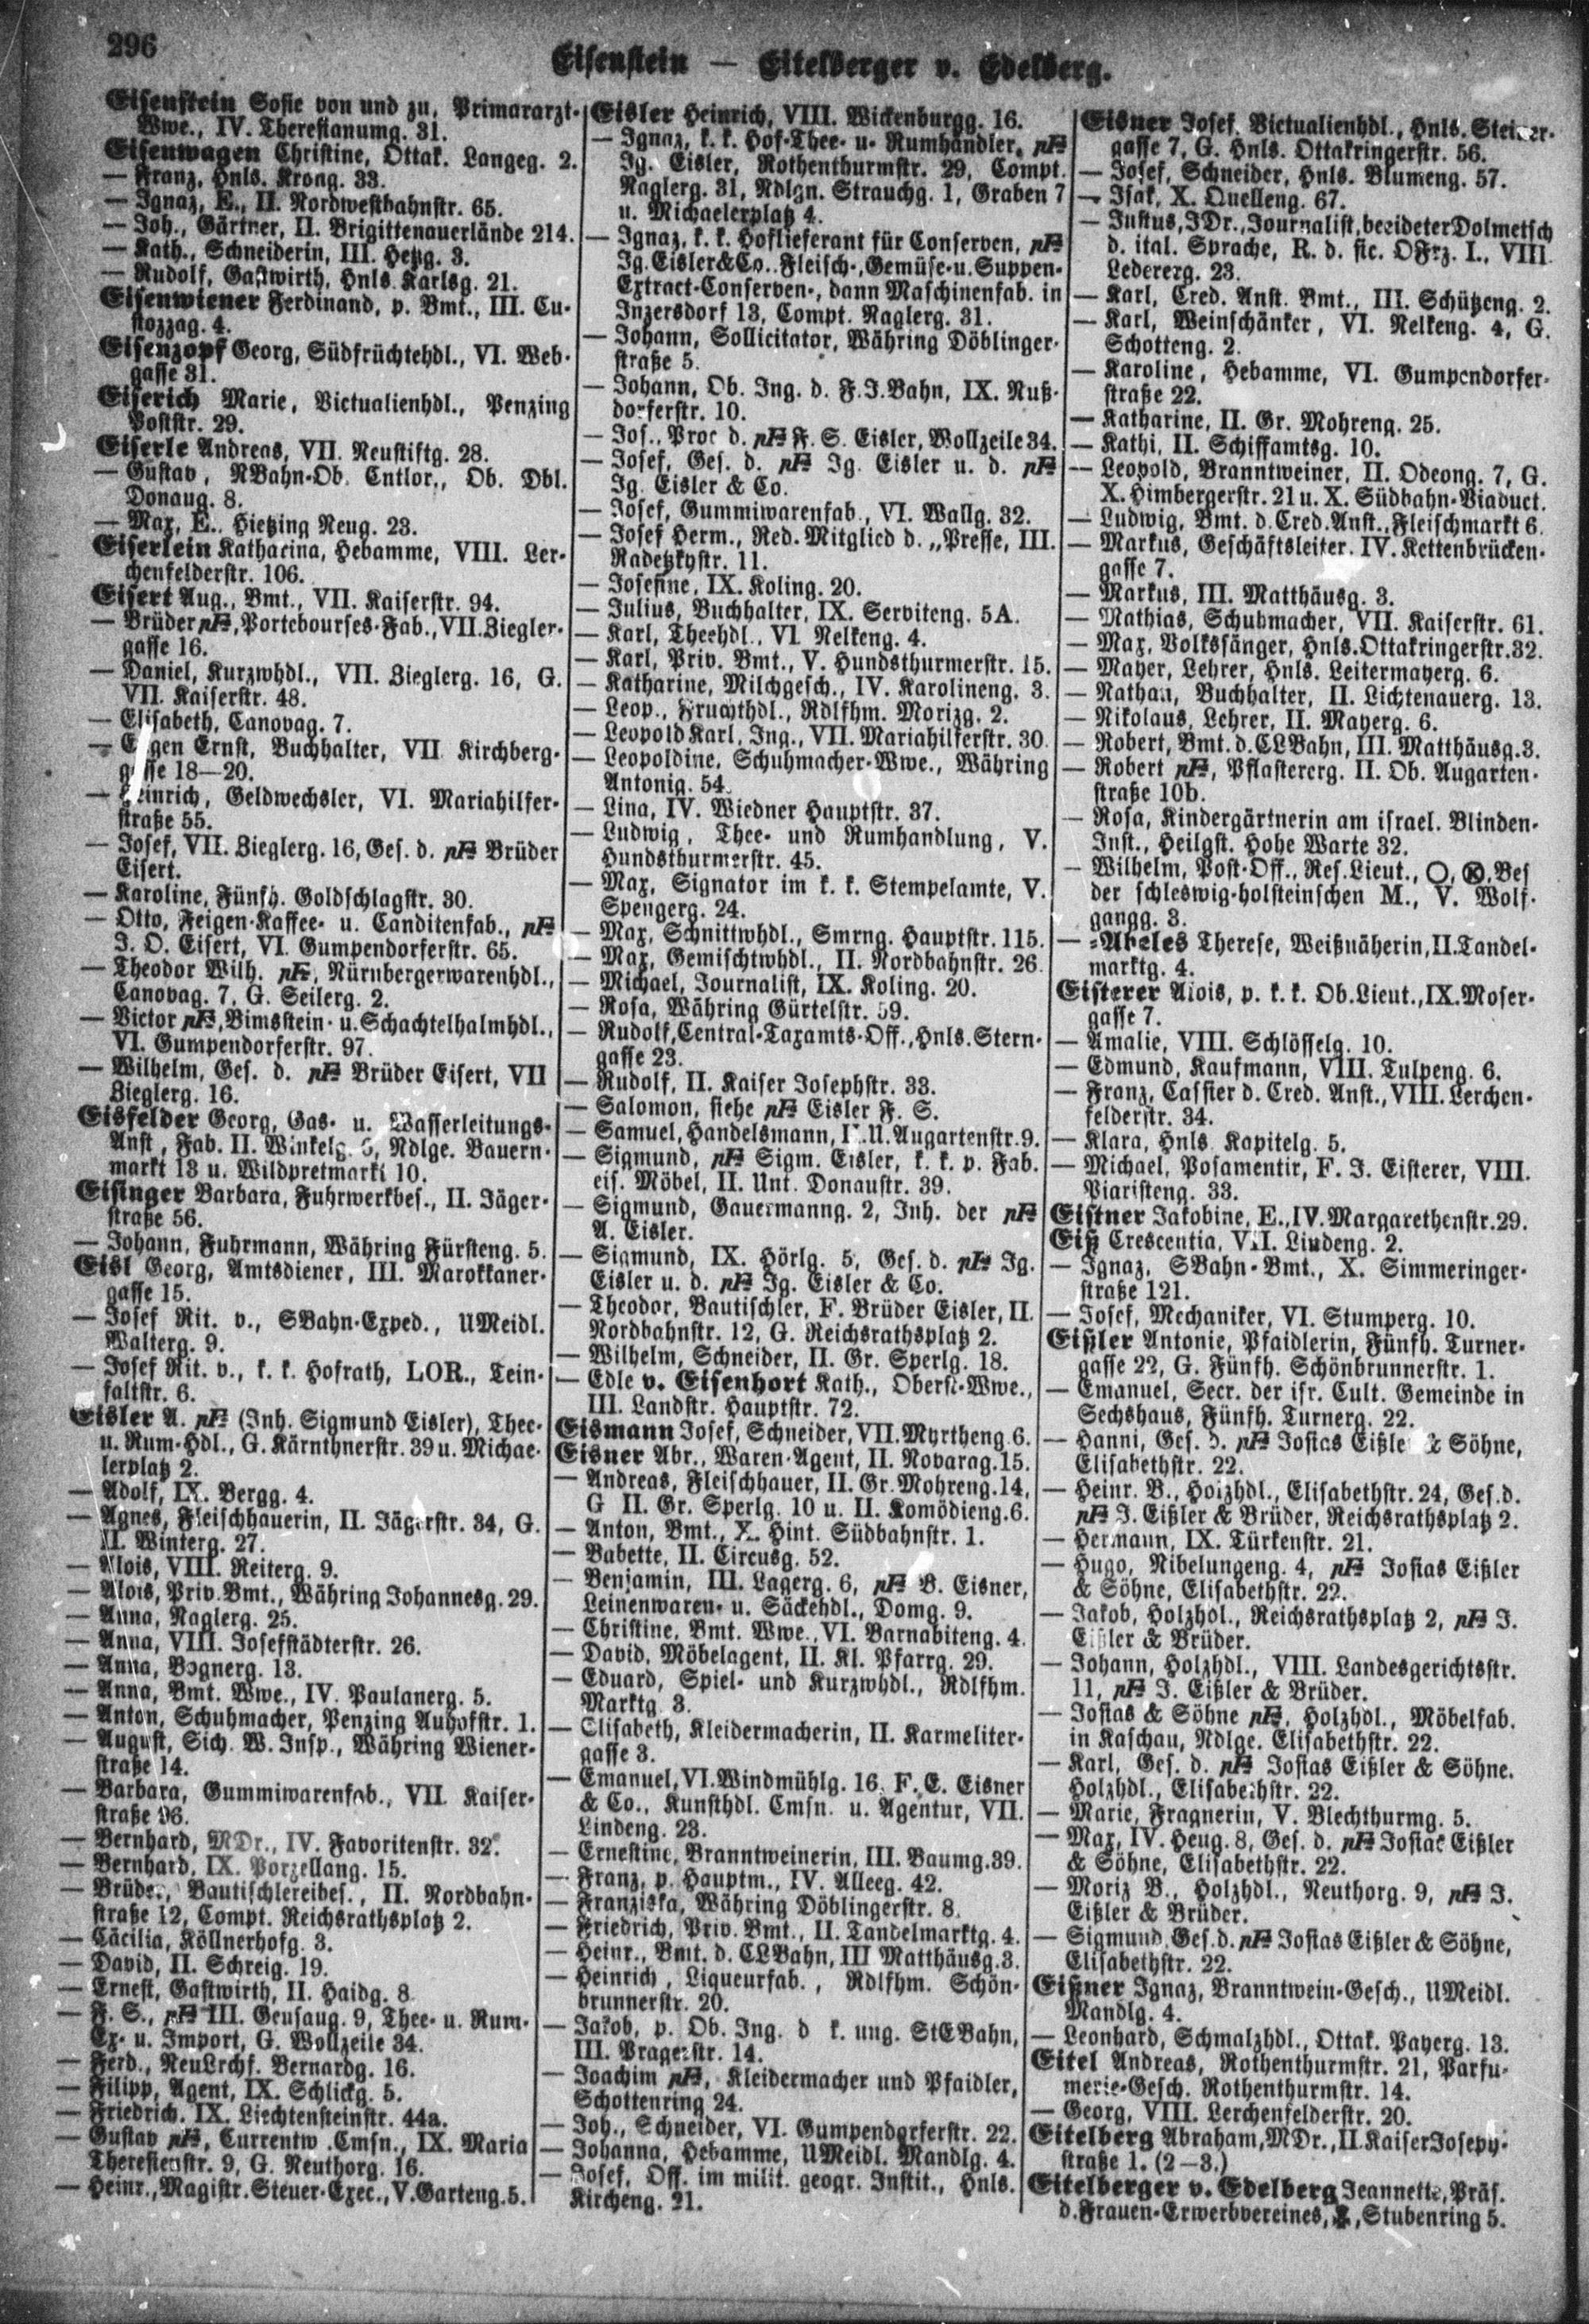 296
Eisenstein — Eitelberger v. Edelberg.
Eisenstein Sofie von und zu, Primararzt-
Wwe., IV. Theresianumg. 31.
Eisenwagen Christine, Ottak. Langeg. 2.
— Franz, Hnls. Krong. 33.
— Ignaz, E., II. Nordwestbahnstr. 65.
— Joh., Gärtner, II. Brigittenauerlände 214.
— Kath., Schneiderin, III. Hetzg. 3.
— Rudolf, Gastwirth, Hnls. Karlsg. 21.
Eisenwiener Ferdinand, p. Bmt., III. Cu-
stozzag. 4.
Eisenzopf Georg, Südfrüchtehdl., VI. Web-
gasse 31.
Eiserich Marie, Victualienhdl., Penzing
Poststr. 29.
Eiserle Andreas, VII. Neustiftg. 28.
— Gustav, NBahn-Ob. Cntlor., Ob. Dbl.
Donaug. 8.
— Max, E., Hietzing Neug. 23.
Eiserlein Katharina, Hebamme, VIII. Ler-
chenfelderstr. 106.
Eisert Aug., Bmt., VII. Kaiserstr. 94.
— Brüder pF, Portebourses-Fab., VII. Ziegler-
gasse 16.
— Daniel, Kurzwhdl., VII. Zieglerg. 16, G.
VII. Kaiserstr. 48.
— Elisabeth, Canovag. 7.
— Eugen Ernst, Buchhalter, VII Kirchberg-
gasse 18—20.
— Heinrich, Geldwechsler, VI. Mariahilfer-
straße 55.
— Josef, VII. Zieglerg. 16, Ges. d. pF Brüder
Eisert.
— Karoline, Fünfh. Goldschlagstr. 30.
— Otto, Feigen-Kaffee- u. Canditenfab., pF
J. O. Eisert, VI. Gumpendorferstr. 65.
— Theodor Wilh. pF, Nürnbergerwarenhdl.,
Canovag. 7, G. Seilerg. 2.
— Victor pF, Bimsstein- u. Schachtelhalmhdl.,
VI. Gumpendorferstr. 97.
— Wilhelm, Ges. d. pF Brüder Eisert, VII
Zieglerg. 16.
Eisfelder Georg, Gas- u. Wasserleitungs-
Anst, Fab. II. Winkelg. Ndlge. Bauern-
markt 13 u. Wildpretmarkt 10.
Eisinger Barbara, Fuhrwerkbes., II. Jäger-
straße 56.
— Johann, Fuhrmann, Währing Fürsteng. 5.
Eisl Georg, Amtsdiener, III. Marokkaner-
gasse 15.
— Josef Rit. v., SBahn-Exped., UMeidl.
Walterg. 9.
— Josef Rit. v., k. k. Hofrath, LOR., Tein-
faltstr. 6.
Eisler A. pF (Inh. Sigmund Eisler), Thee-
u. Rum-Hdl., G. Kärnthnerstr. 39 u. Michae-
lerplatz 2.
— Adolf, IX. Bergg. 4.
— Agnes, Fleischhauerin, II. Jägerstr. 34, G.
II. Winterg. 27.
— Alois, VIII. Reiterg. 9.
— Alois, Priv. Bmt., Währing Johannesg. 29.
— Anna, Naglerg. 25.
— Anna, VIII. Josefstädterstr. 26.
— Anna, Bognerg. 13.
— Anna, Bmt. Wwe., IV. Paulanerg. 5.
— Anton, Schuhmacher, Penzing Auhofstr. 1.
— August, Sich. W. Insp., Währing Wiener-
straße 14.
— Barbara, Gummiwarenfab., VII. Kaiser-
straße 96.
— Bernhard, MDr., IV. Favoritenstr. 32.
— Bernhard, IX. Porzellang. 15.
— Brüder, Bautischlereibes., II. Nordbahn-
straße 12, Compt. Reichsrathsplatz 2.
— Cäcilia, Köllnerhofg. 3.
— David, II. Schreig. 19.
— Ernest, Gastwirth, II. Haidg. 8
— F. S., pF III. Geusaug. 9, Thee- u. Rum-
Ex- u. Import, G. Wollzeile 34.
— Ferd., NeuLrchf. Bernardg. 16.
— Filipp, Agent, IX. Schlickg. 5.
— Friedrich. IX. Liechtensteinstr. 44a.
— Gustav pF, Currentw. Cmsn., IX. Maria
Theresienstr. 9, G. Neuthorg. 16.
— Heinr., Magistr. Steuer-Exec., V. Garteng. 5.
Eisler Heinrich, VIII. Wickenburgg. 16.
— Ignaz, k. k. Hof-Thee- u. Rumhändler, pF
Ig. Eisler, Rothenthurmstr. 29, Compt.
Naglerg. 31, Ndlgn. Strauchg. 1, Graben 7
u. Michaelerplatz 4.
— Ignaz, k. k. Hoflieferant für Conserven, pF
Ig. Eisler & Co. Fleisch-, Gemüse- u. Suppen-
Extract-Conserven-, dann Maschinenfab. in
Inzersdorf 13, Compt. Naglerg. 31.
— Johann, Sollicitator, Währing Döblinger-
straße 5.
— Johann, Ob. Ing. d. F. J. Bahn, IX. Nuß-
dorferstr. 10.
— Jos., Proc d. pF F. S. Eisler, Wollzeile 34.
— Josef, Ges. d. pF Ig. Eisler u. d. pF
Ig. Eisler & Co.
— Josef, Gummiwarenfab., VI. Wallg. 32.
— Josef Herm., Red.-Mitglied d. „Presse, III.
Radetzkystr. 11.
— Josefine, IX. Koling. 20.
— Julius, Buchhalter, IX. Serviteng. 5A.
— Karl, Theehdl., VI Nelkeng. 4.
— Karl, Priv. Bmt., V. Hundsthurmerstr. 15.
— Katharine, Milchgesch., IV. Karolineng. 3.
— Leop., Fruchthdl., Rdlfhm. Morizg. 2.
— Leopold Karl, Ing., VII. Mariahilferstr. 30.
— Leopoldine, Schuhmacher-Wwe., Währing
Antonig. 54.
— Lina, IV. Wiedner Hauptstr. 37.
— Ludwig, Thee- und Rumhandlung, V.
Hundsthurmerstr. 45.
— Max, Signator im k. k. Stempelamte, V.
Spengerg. 24.
— Max, Schnittwhdl., Smrng. Hauptstr. 115.
— Max, Gemischtwhdl., II. Nordbahnstr. 26
— Michael, Journalist, IX. Koling. 20.
— Rosa, Währing Gürtelstr. 59.
— Rudolf, Central-Taxamts-Off., Hnls. Stern-
gasse 23.
— Rudolf, II. Kaiser Josephstr. 33.
— Salomon, siehe pF Eisler F. S.
— Samuel, Handelsmann, II. U. Augartenstr. 9.
— Sigmund, pF Sigm. Eisler, k. k. p. Fab.
eis. Möbel, II. Unt. Donaustr. 39.
— Sigmund, Gauermanng. 2, Inh. der pF
A. Eisler.
— Sigmund, IX. Hörlg. 5, Ges. d. pF Ig.
Eisler u. d. pF Ig. Eisler & Co.
— Theodor, Bautischler, F. Brüder Eisler, II.
Nordbahnstr. 12, G. Reichsrathsplatz 2.
— Wilhelm, Schneider, II. Gr. Sperlg. 18.
— Edle v. Eisenhort Kath., Oberst-Wwe.,
III. Landstr. Hauptstr. 72.
Eismann Josef, Schneider, VII. Myrtheng. 6.
Eisner Abr., Waren-Agent, II. Novarag. 15.
— Andreas, Fleischhauer, II. Gr. Mohreng. 14,
G II. Gr. Sperlg. 10 u. II. Komödieng. 6.
— Anton, Bmt., X. Hint. Südbahnstr. 1.
— Babette, II. Circusg. 52.
— Benjamin, III. Lagerg. 6, pF B. Eisner,
Leinenwaren- u. Säckehdl., Domg. 9.
— Christine, Bmt. Wwe., VI. Barnabiteng. 4.
— David, Möbelagent, II. Kl. Pfarrg. 29.
— Eduard, Spiel- und Kurzwhdl., Rdlfhm.
Marktg. 3.
— Elisabeth, Kleidermacherin, II. Karmeliter-
gasse 3.
— Emanuel, VI. Windmühlg. 16. F. E. Eisner
& Co., Kunsthdl. Cmsn. u. Agentur, VII.
Lindeng. 23.
— Ernestine, Branntweinerin, III. Baumg. 39.
— Franz, p. Hauptm., IV. Alleeg. 42.
— Franziska, Währing Döblingerstr. 8.
— Friedrich, Priv. Bmt., II. Tandelmarktg. 4.
— Heinr., Bmt. d. CLBahn, III Matthäusg. 3.
— Heinrich, Liqueurfab., Rdlfhm. Schön-
brunnerstr. 20.
— Jakob, p. Ob. Ing. d k. ung. StEBahn,
III. Pragerstr. 14.
— Joachim pF, Kleidermacher und Pfaidler,
Schottenring 24.
— Joh., Schneider, VI. Gumpendorferstr. 22.
— Johanna, Hebamme, UMeidl. Mandlg. 4.
— Josef, Off. im milit. geogr. Instit., Hnls.
Kircheng. 21.
Eisner Josef, Victualienhdl., Hnls. Steiner-
gasse 7, G. Hnls. Ottakringerstr. 56.
— Josef, Schneider, Hnls. Blumeng. 57.
— Isak, X. Quelleng. 67.
— Justus, JDr., Journalist, beeideter Dolmetsch
d. ital. Sprache, R. d. sic. OFrz. I., VIII.
Ledererg. 23.
— Karl, Cred. Anst. Bmt., III. Schützeng. 2.
— Karl, Weinschänker, VI. Nelkeng. 4, G.
Schotteng. 2.
— Karoline, Hebamme, VI. Gumpendorfer-
straße 22.
— Katharine, II. Gr. Mohreng. 25.
— Kathi, II. Schiffamtsg. 10.
— Leopold, Branntweiner, II. Odeong. 7, G.
X. Himbergerstr. 21 u. X. Südbahn-Viaduct.
— Ludwig, Bmt. d. Cred. Anst., Fleischmarkt 6.
— Markus, Geschäftsleiter. IV. Kettenbrücken-
gasse 7.
— Markus, III. Matthäusg. 3.
— Mathias, Schuhmacher, VII. Kaiserstr. 61.
— Max, Volkssänger, Hnls. Ottakringerstr. 32.
— Mayer, Lehrer, Hnls. Leitermayerg. 6.
— Nathan, Buchhalter, II. Lichtenauerg. 13.
— Nikolaus, Lehrer, II. Mayerg. 6.
— Robert, Bmt. d. CLBahn, III. Matthäusg. 3.
— Robert pF, Pflastererg. II. Ob. Augarten-
straße 10b.
— Rosa, Kindergärtnerin am israel. Blinden-
Inst., Heilgst. Hohe Warte 32.
— Wilhelm, Post-Off., Res. Lieut., ◯, Ⓚ, Bes
der schleswig-holsteinschen M., V. Wolf-
gangg. 3.
— -Abeles Therese, Weißnäherin, II. Tandel-
marktg. 4.
Eisterer Alois, p. k. k. Ob. Lieut., IX. Moser-
gasse 7.
— Amalie, VIII. Schlösselg. 10.
— Edmund, Kaufmann, VIII. Tulpeng. 6.
— Franz, Cassier d. Cred. Anst., VIII. Lerchen-
felderstr. 34.
— Klara, Hnls. Kapitelg. 5.
— Michael, Posamentir, F. J. Eisterer, VIII.
Piaristeng. 33.
Eistner Jakobine, E., IV. Margarethenstr. 29.
Eiß Crescentia, VII. Lindeng. 2.
— Ignaz, SBahn-Bmt., X. Simmeringer-
straße 121.
— Josef, Mechaniker, VI. Stumperg. 10.
Eißler Antonie, Pfaidlerin, Fünfh. Turner-
gasse 22, G. Fünfh. Schönbrunnerstr. 1.
— Emanuel, Secr. der isr. Cult. Gemeinde in
Sechshaus, Fünfh. Turnerg. 22.
— Hanni, Ges. d. pF Josias Eißler & Söhne,
Elisabethstr. 22.
— Heinr. B., Holzhdl., Elisabethstr. 24, Ges. d.
pF J. Eißler & Brüder, Reichsrathsplatz 2.
— Hermann, IX. Türkenstr. 21.
— Hugo, Nibelungeng. 4, pF Josias Eißler
& Söhne, Elisabethstr. 22.
— Jakob, Holzhdl., Reichsrathsplatz 2, pF J.
Eißler & Brüder.
— Johann, Holzhdl., VIII. Landesgerichtsstr.
11, pF J. Eißler & Brüder.
— Josias & Söhne pF, Holzhdl., Möbelfab.
in Kaschau, Ndlge. Elisabethstr. 22.
— Karl, Ges. d. pF Josias Eißler & Söhne.
Holzhdl., Elisabethstr. 22.
— Marie, Fragnerin, V. Blechthurmg. 5.
— Max, IV. Heug. 8, Ges. d. pF Josias Eißler
& Söhne, Elisabethstr. 22.
— Moriz B., Holzhdl., Neuthorg. 9, pF J.
Eißler & Brüder.
— Sigmund, Ges. d. pF Josias Eißler & Söhne,
Elisabethstr. 22.
Eißner Ignaz, Branntwein-Gesch., UMeidl.
Mandlg. 4.
— Leonhard, Schmalzhdl., Ottak. Payerg. 13.
Eitel Andreas, Rothenthurmstr. 21, Parfu-
merie-Gesch. Rothenthurmstr. 14.
— Georg, VIII. Lerchenfelderstr. 20.
Eitelberg Abraham, MDr., II. Kaiser Joseph-
straße 1. (2—3.)
Eitelberger v. Edelberg Jeannette, Präs.
d. Frauen-Erwerbvereines, Stubenring 5.